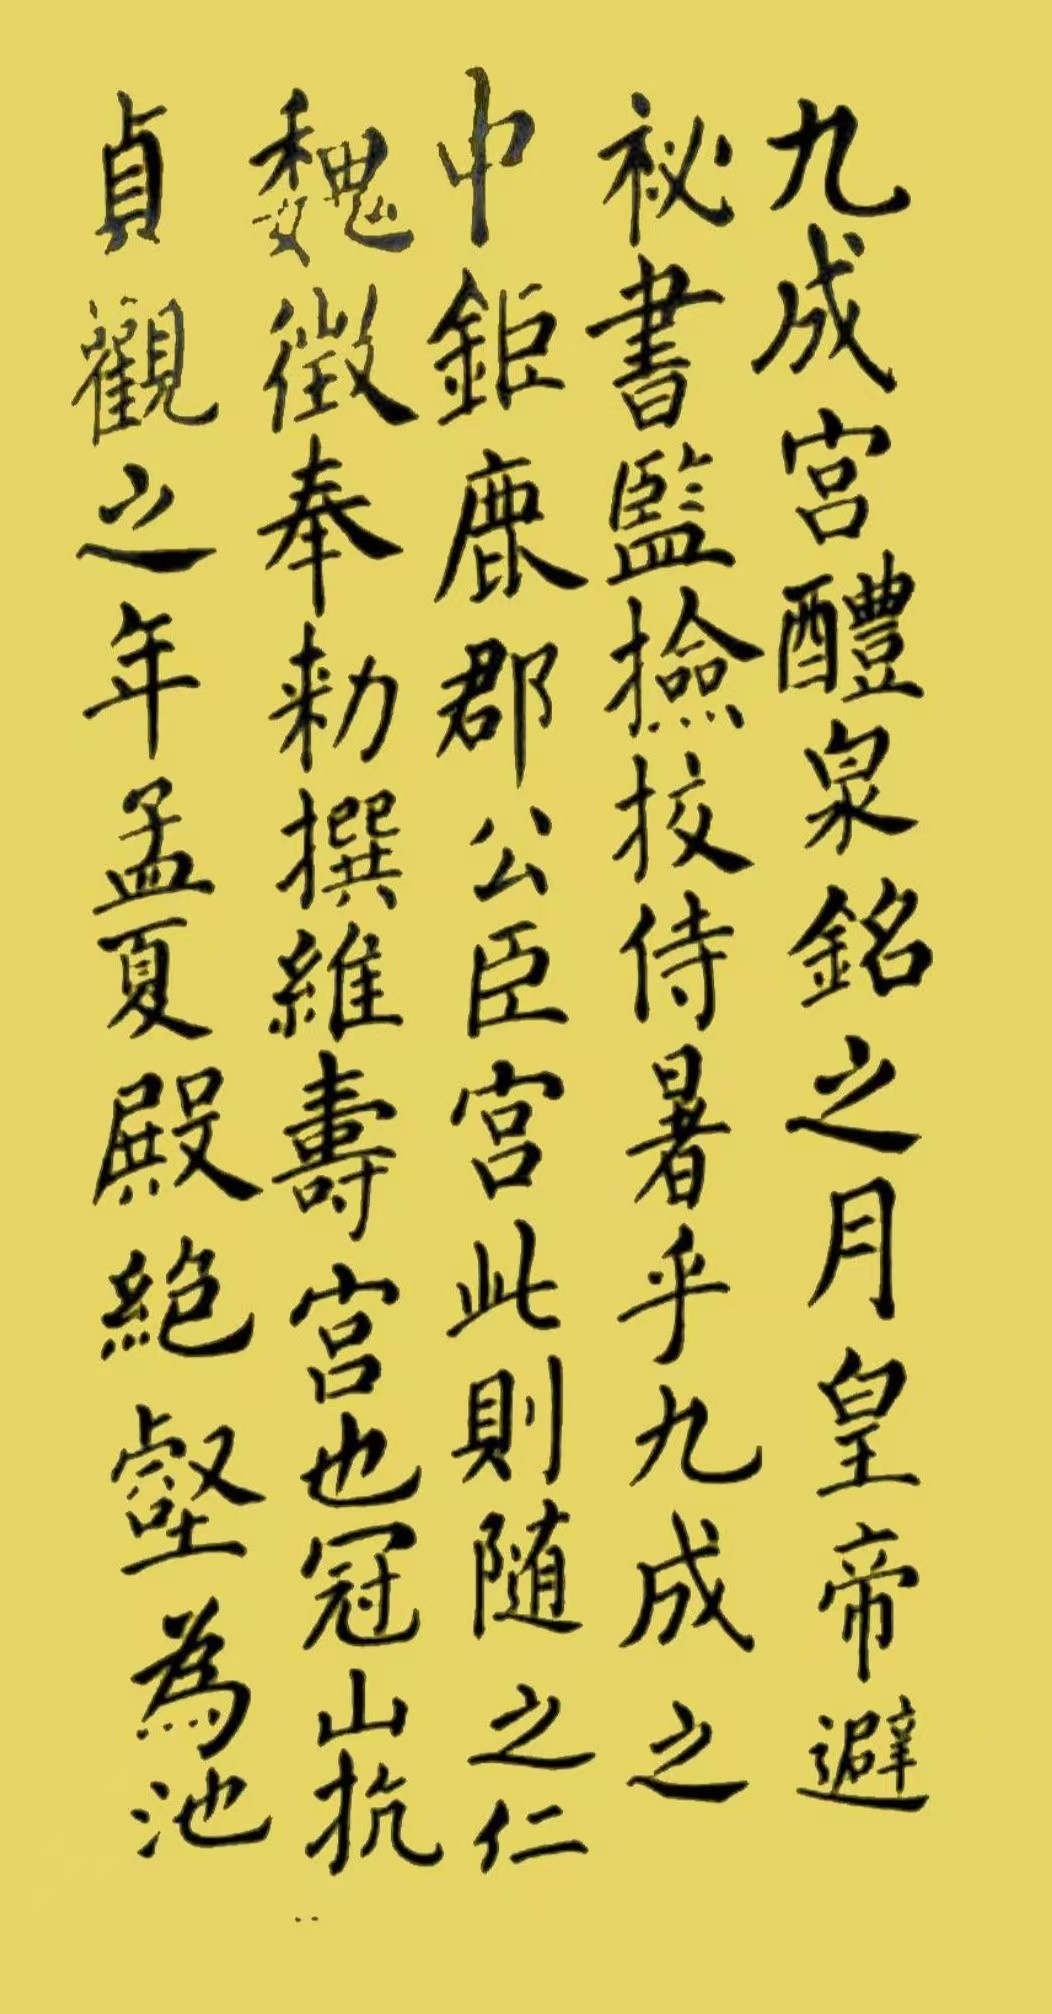 九成宮醴泉銘之月皇帝避
祕書監撿挍侍暑乎九成之
中鉅鹿郡公臣宮此則隨之仁
魏徵奉勑撰維壽宮也冠山抗
貞觀之年孟夏殿絕壑為池